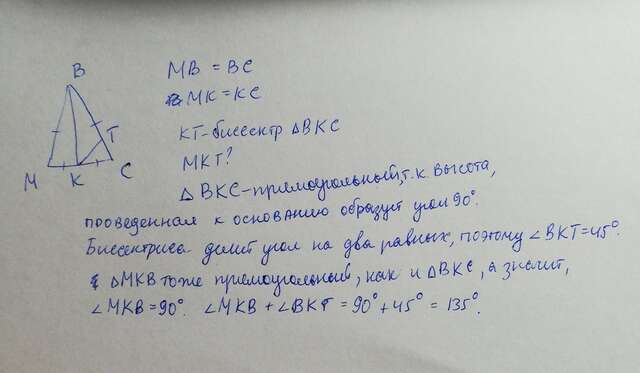 B
T
M K C
MB = BC
MK = KC
KT-биссектр △BKC
MKT?
△ BKC-прямоугольный, т.к высота,
проведенная к основанию образует угол 90°.
Биссектриса делит угол на два равных, поэтому ∠BKT=45°.
△MKB тоже прямоугольный, как и △BKC, а значит,
∠MKB=90°. ∠MKB + ∠BKT = 90° + 45° = 135°.